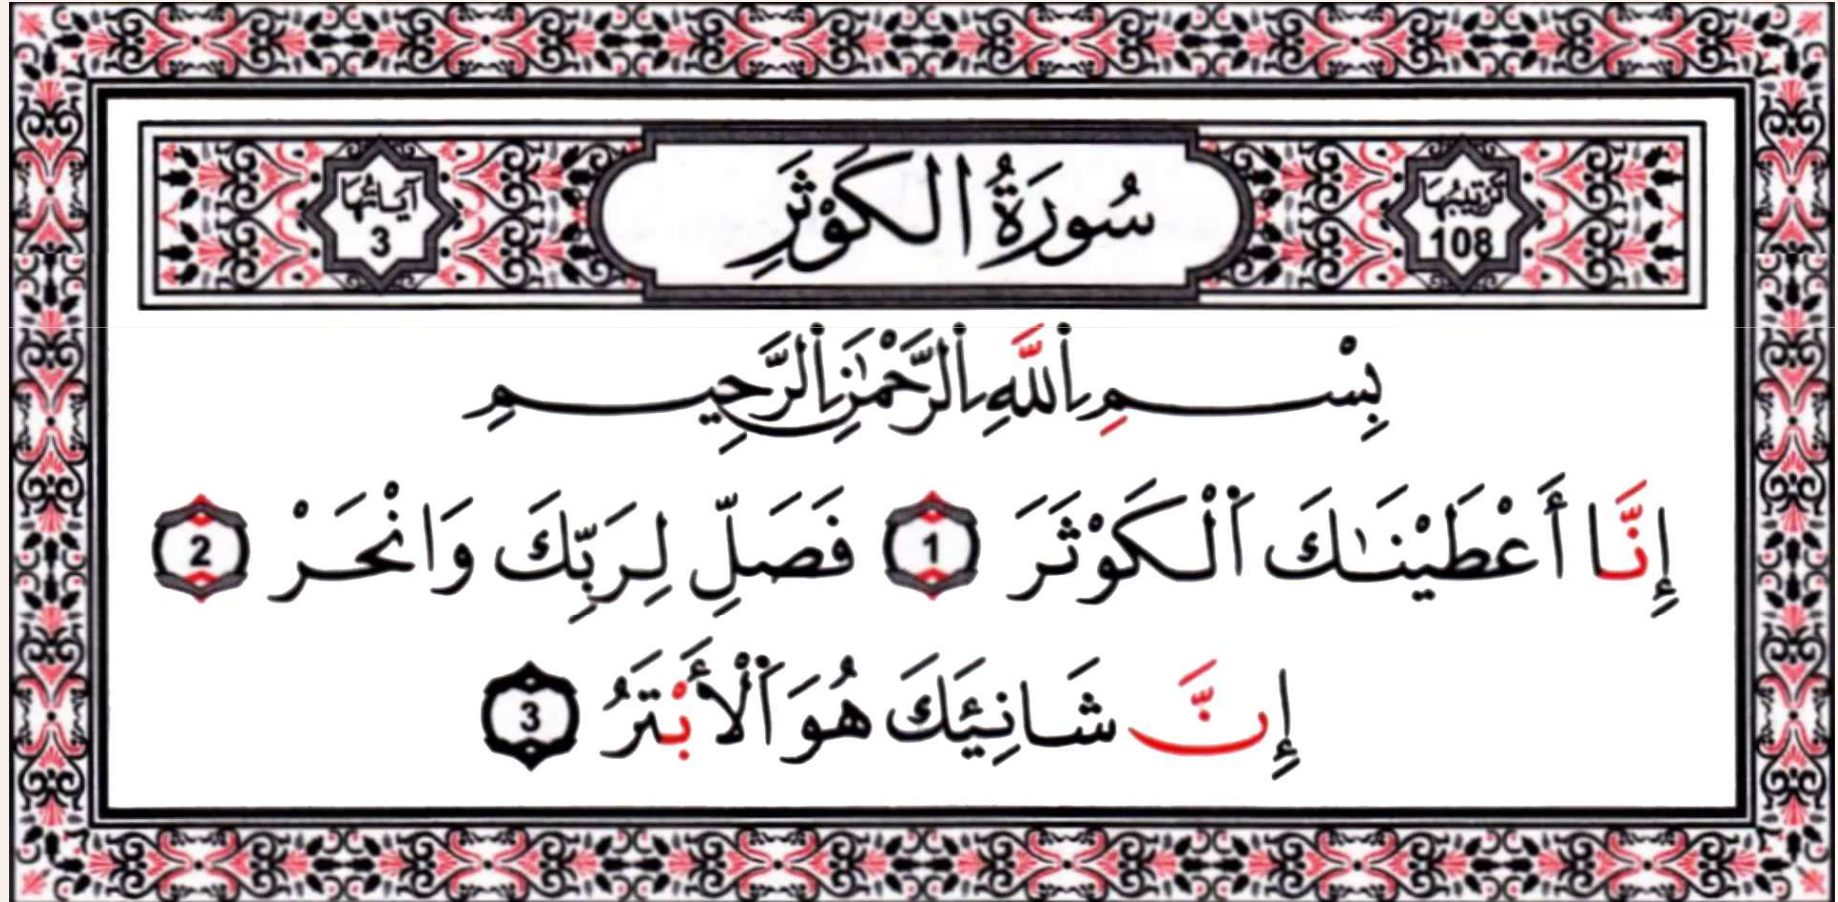 ترتيبها
108
سُورَةُ الكَوْثَرِ
آياتها
3
بِسْمِ اَ۬للَّهِ اِ۬لرَّحْمَٰنِ اِ۬لرَّحِيمِ
إِنَّا أَعْطَيْنَٰكَ اَ۬لْكَوْثَرَ 1 فَصَلِّ لِرَبِّكَ وَانْحَرْ 2
إِنَّ شَانِئَكَ هُوَ اَ۬لْأَبْتَرُ 3